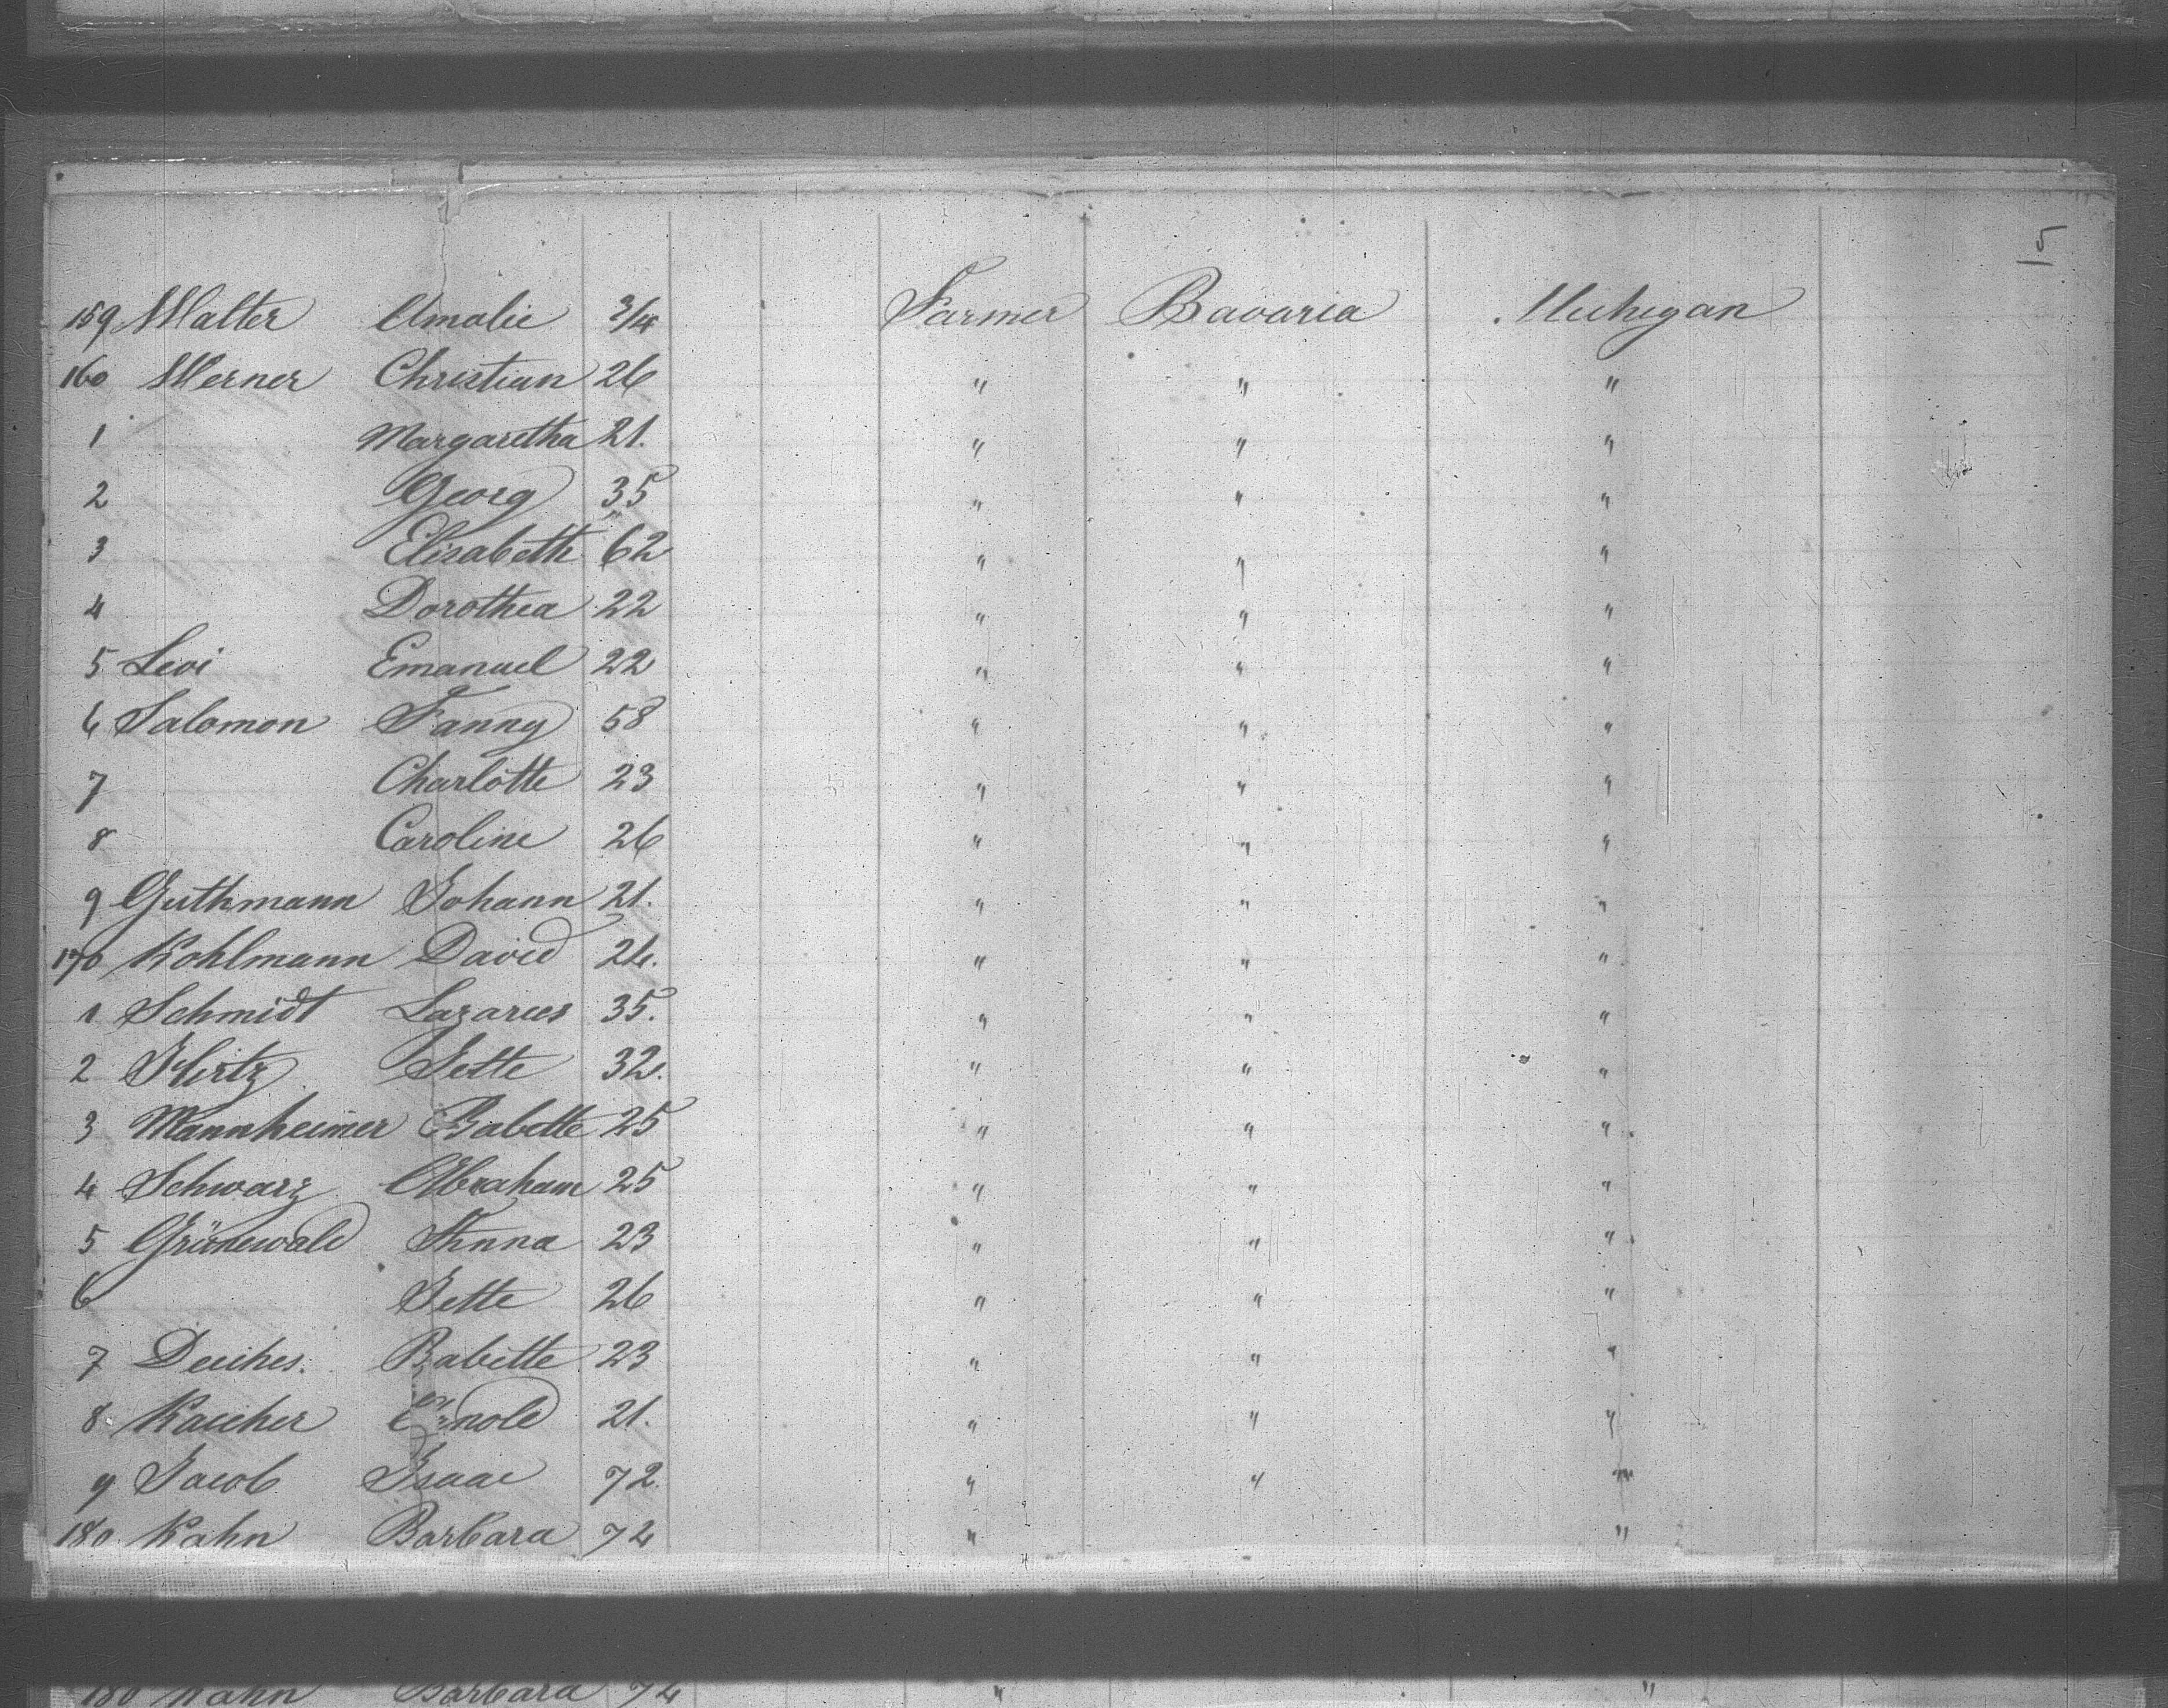 15
159 Walter Amalie 3/4 Farmer Bavaria Michigan
160 Werner Christian 26 " " "
1 Margaretha 21. " " "
2 Georg 35 " " "
3 Elisabeth 62 " " "
4 Dorothea 22 " " "
5 Levi Emanuel 22 " " "
6 Salomon Fanny 58 " " "
7 Charlotte 23 " " "
8 Caroline 26 " " "
9 Guthmann Johann 21. " " "
170 Kohlmann David 24. " " "
1 Schmidt Lazarus 35. " " "
2 Hirtz Jette 32. " " "
3 Mannheimer Babette 25 " " "
4 Schwarz Abraham 25 " " "
5 Grünewald Anna 23 " " "
6 Jette 26 " " "
7 Babette 23 " " "
8 Kaucher 21. " " "
9 Jacob Isaac 72. " " "
180. Kahn Barbara 72 " "
180 Kahn Barbara 72 " "